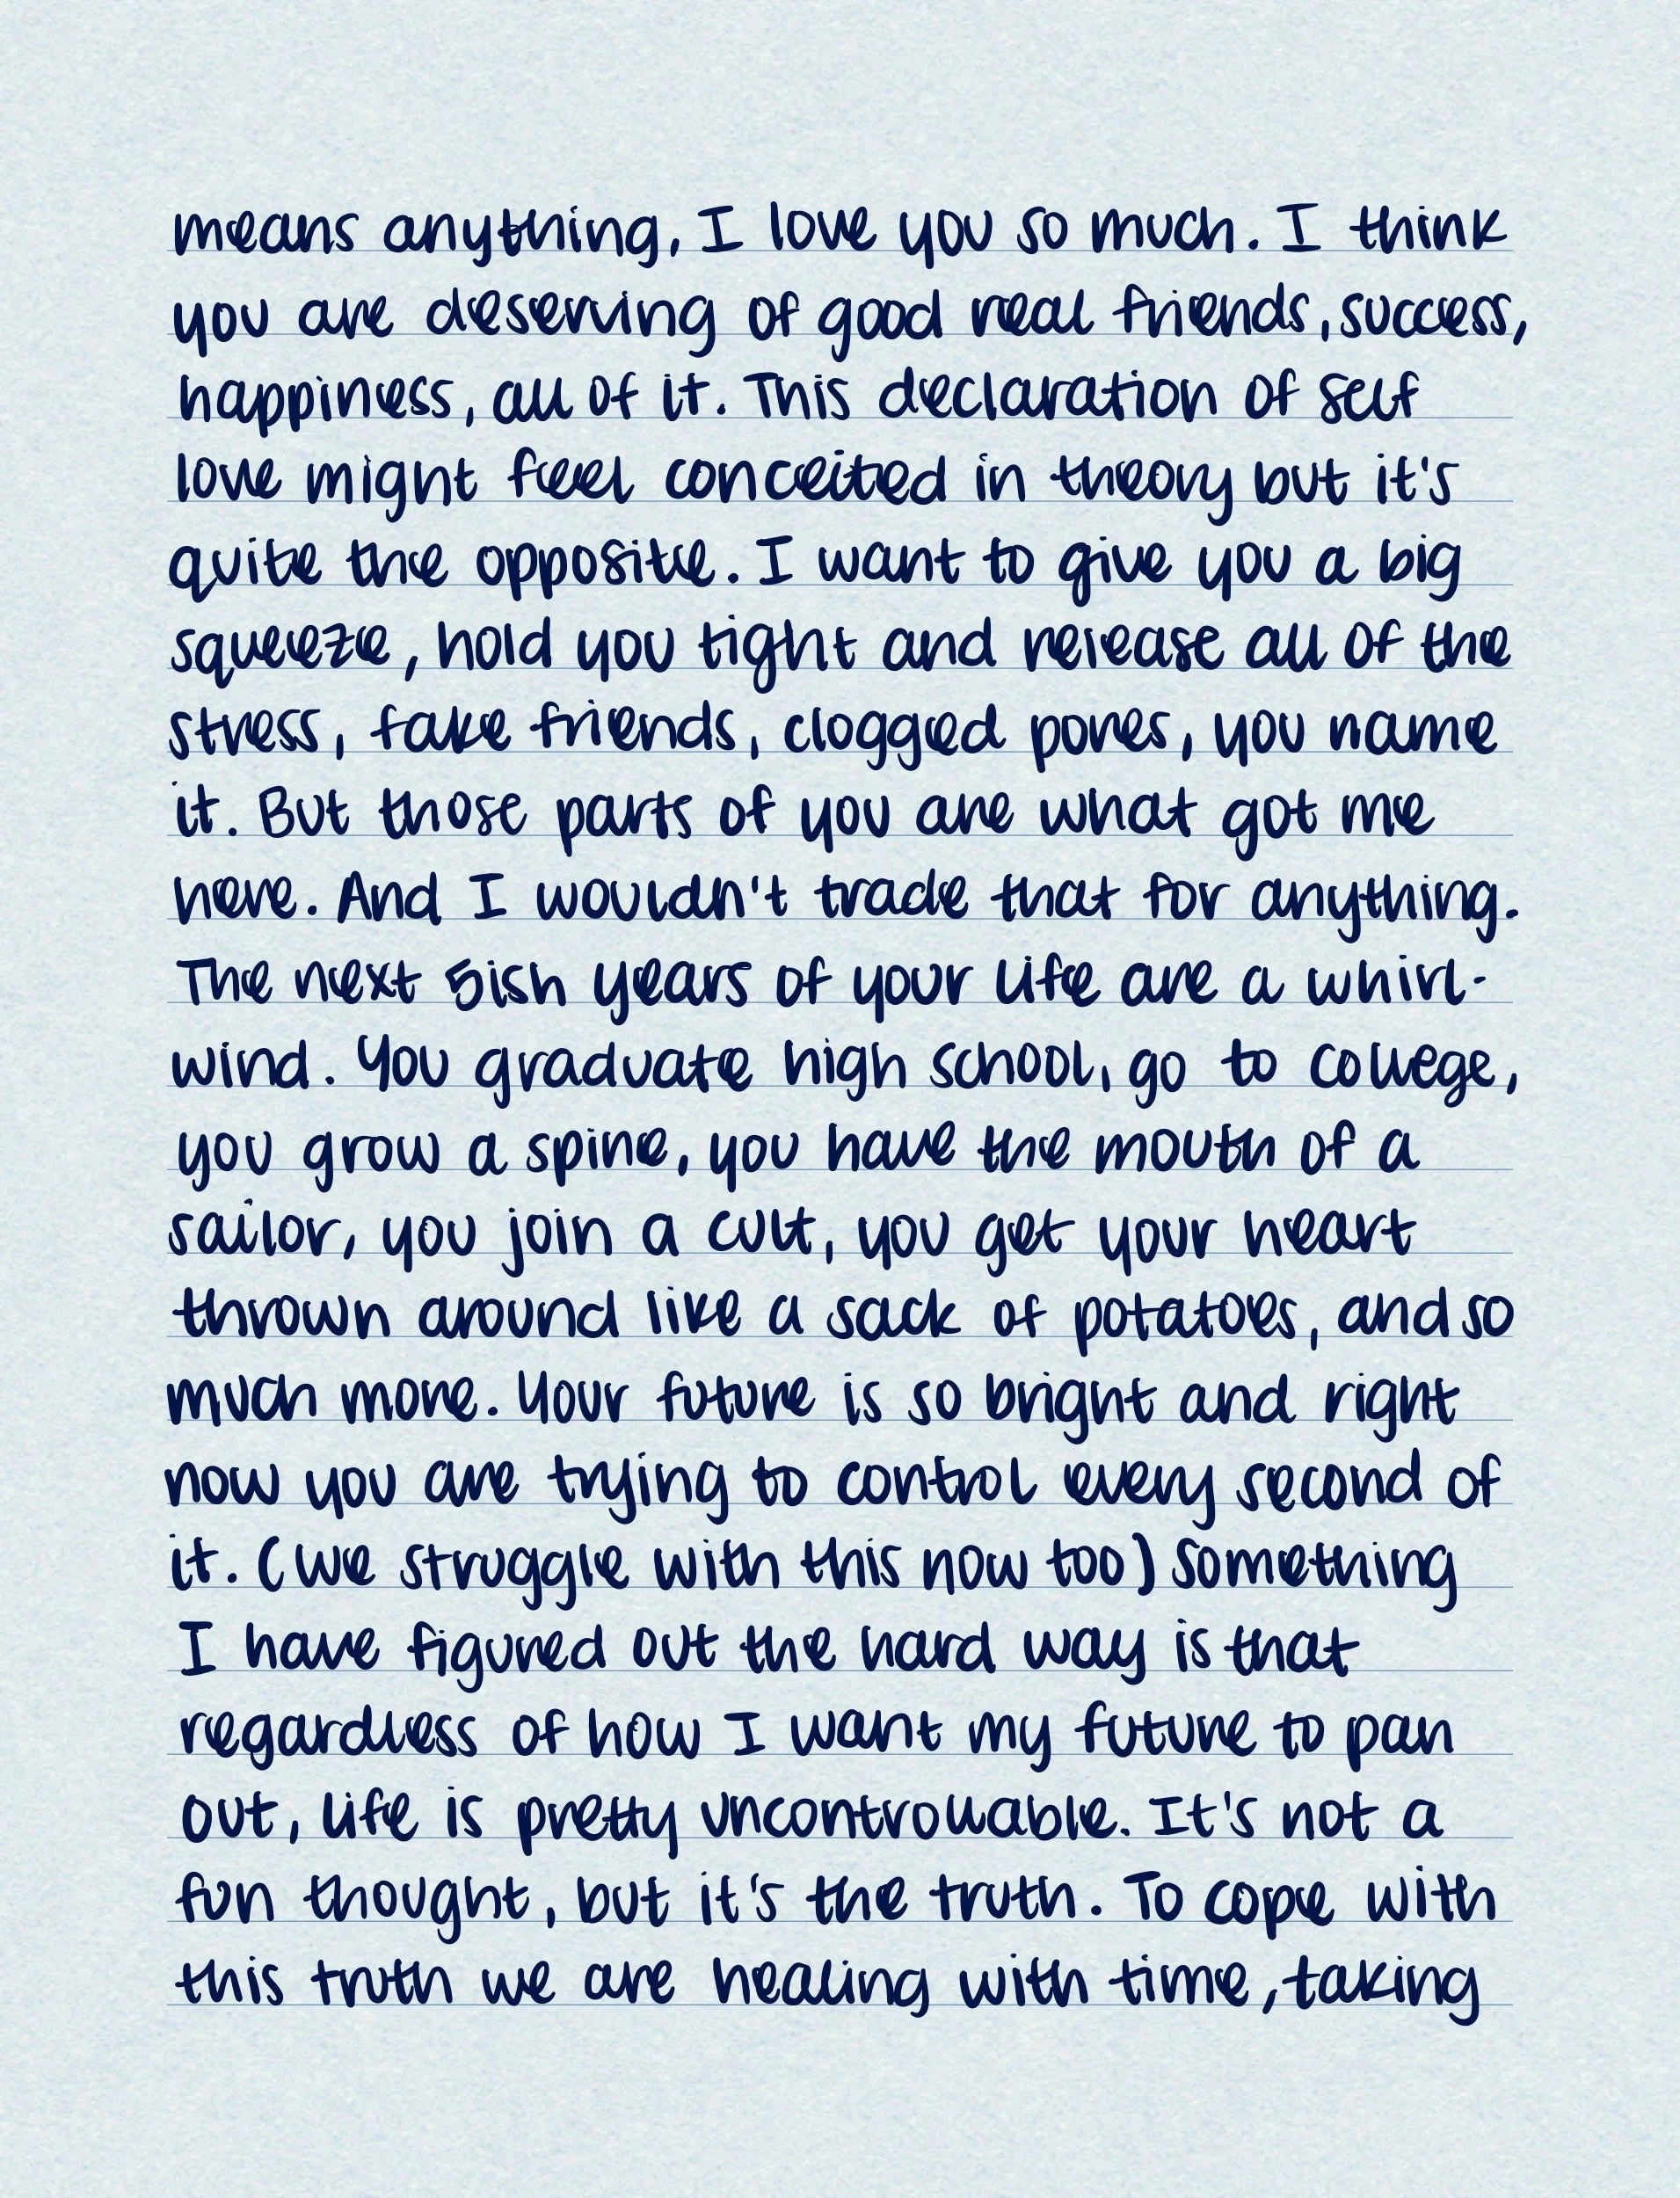 means anything, I love you so much. I think
you are deserving of good real friends, success,
happiness, all of it. This declaration of self
love might feel conceited in theory but it's
quite the opposite. I want to give you a big
squeeze, hold you tight and release all of the
stress, fake friends, clogged pores, you name
it. But those parts of you are what got me
here. And I wouldn't trade that for anything.
The next 5ish years of your life are a whirl-
wind. You graduate high school, go to college,
you grow a spine, you have the mouth of a
sailor, you join a cult, you get your heart
thrown around like a sack of potatoes, and so
much more. Your future is so bright and right
now you are trying to control every second of
it. (We struggle with this now too) Something
I have figured out the hard way is that
regardless of how I want my future to pan
out, life is pretty uncontrollable. It's not a
fun thought, but it's the truth. To cope with
this truth we are healing with time, taking